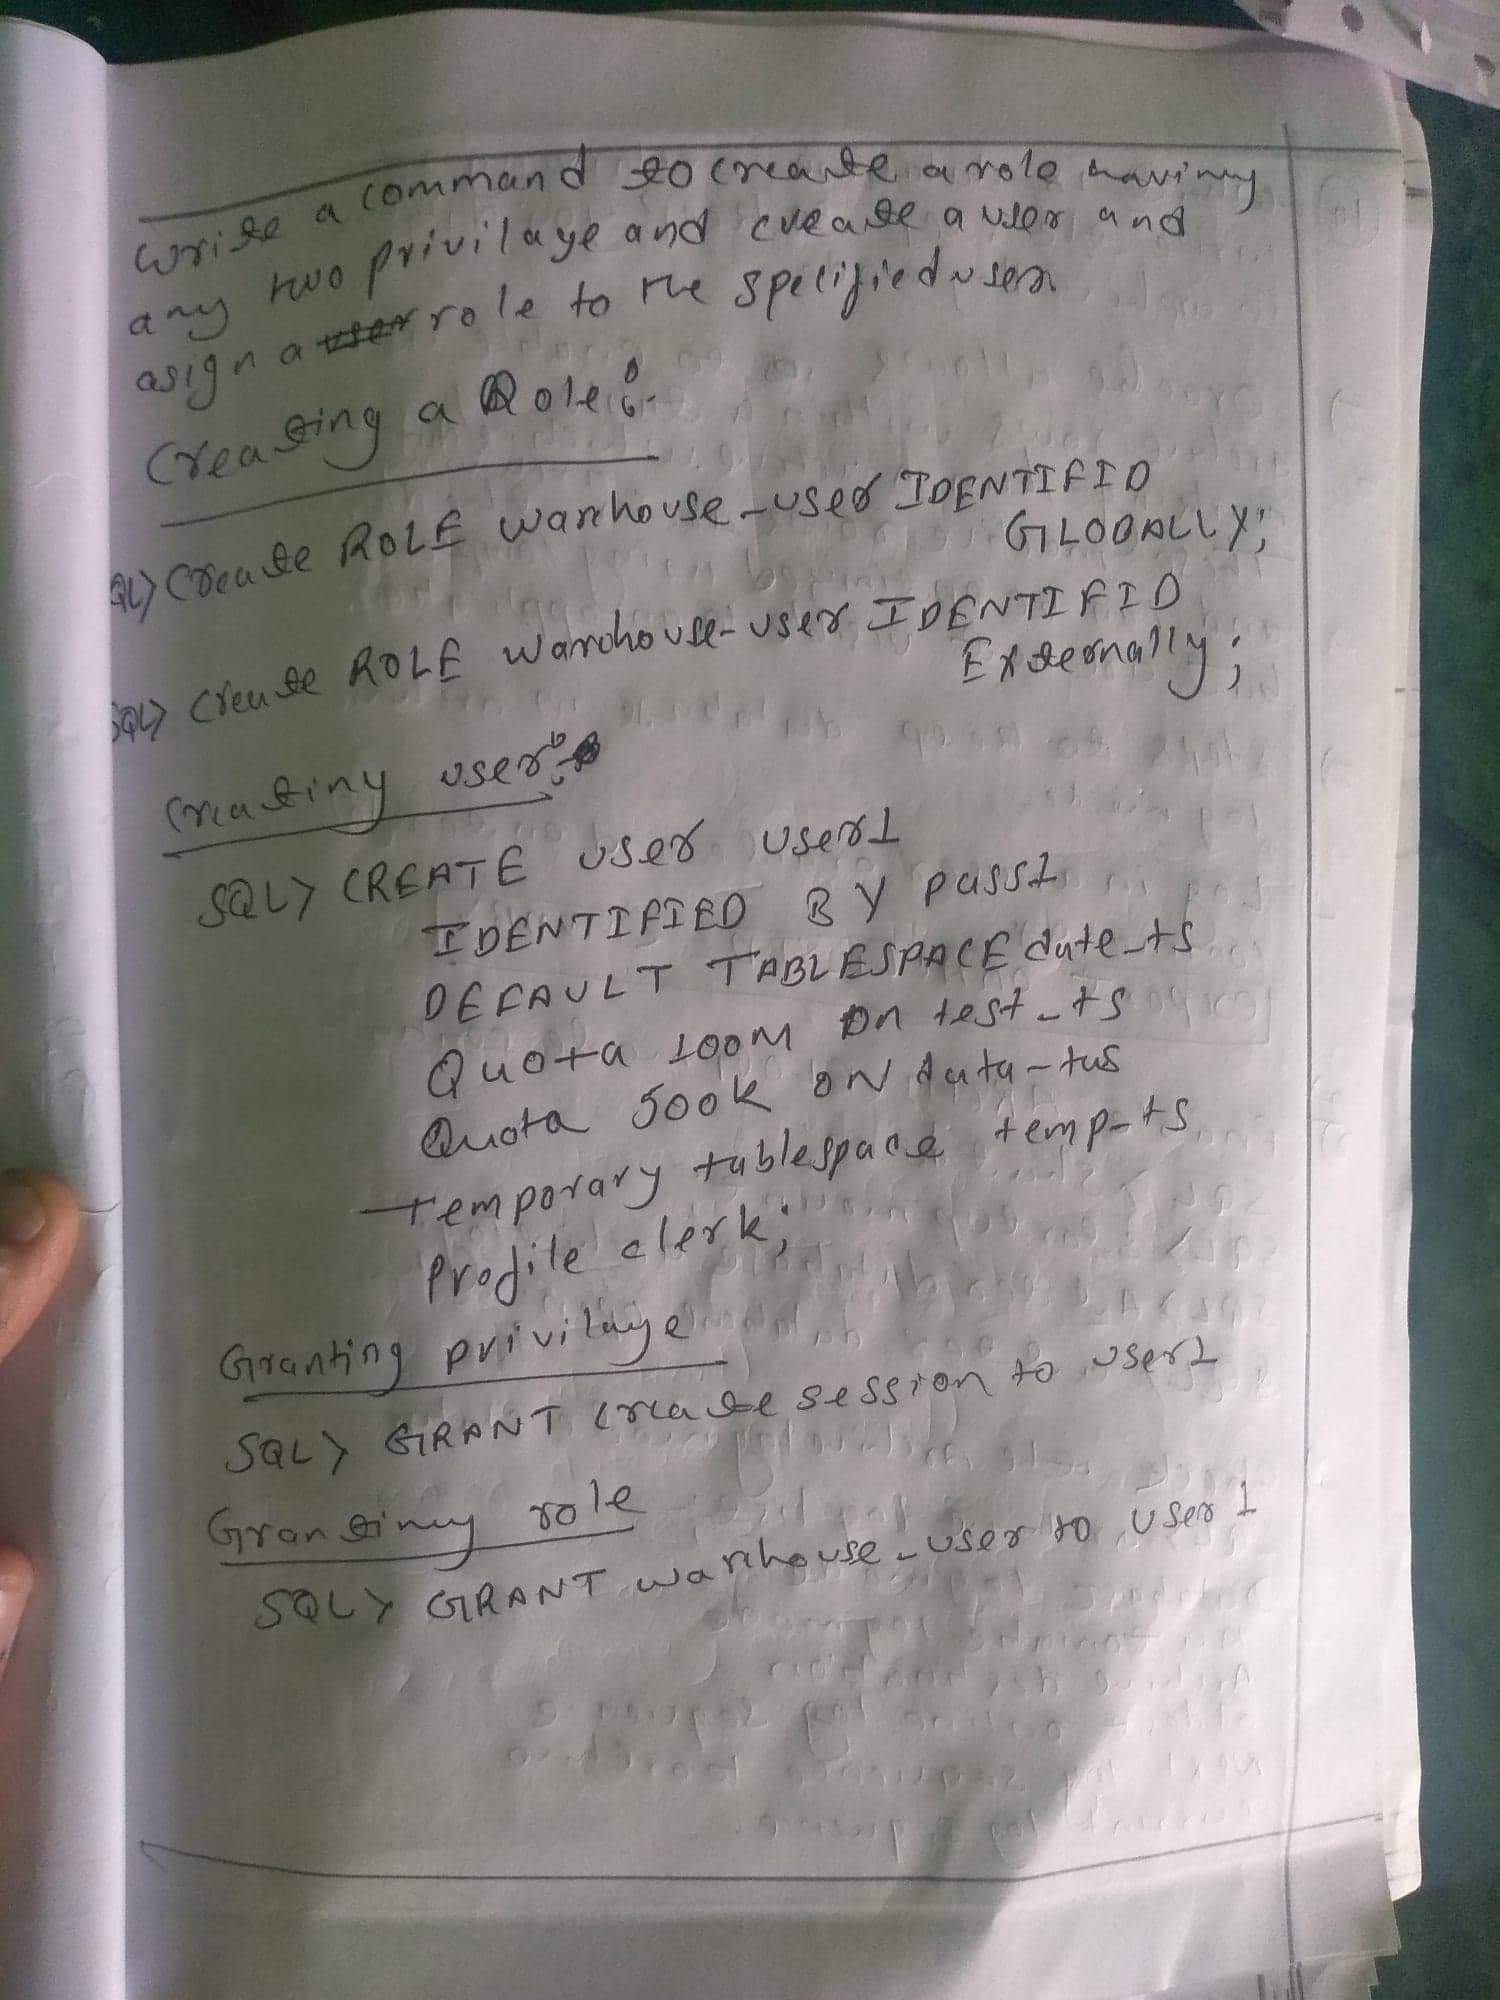 Write a command to create a role having
any two privilaye and create a user and
asign a role to the specified user
Creating a Role:-
QL> Create ROLE warehouse_user IDENTIFID
GLOBALLY;
SQL> Create ROLE warehouse-user IDENTIFID
Externally;
Creating user:-
SQL> CREATE user user1
IDENTIFIED BY pass1
DEFAULT TABLESPACE date_ts
Quota 100M On test_ts
Quota 500k ON data-tus
Temporary tablespace temp-ts
Profile clerk;
Granting privilaye
SQL> GRANT create session to user1
Granting role
SQL> GRANT warehouse_user to user1